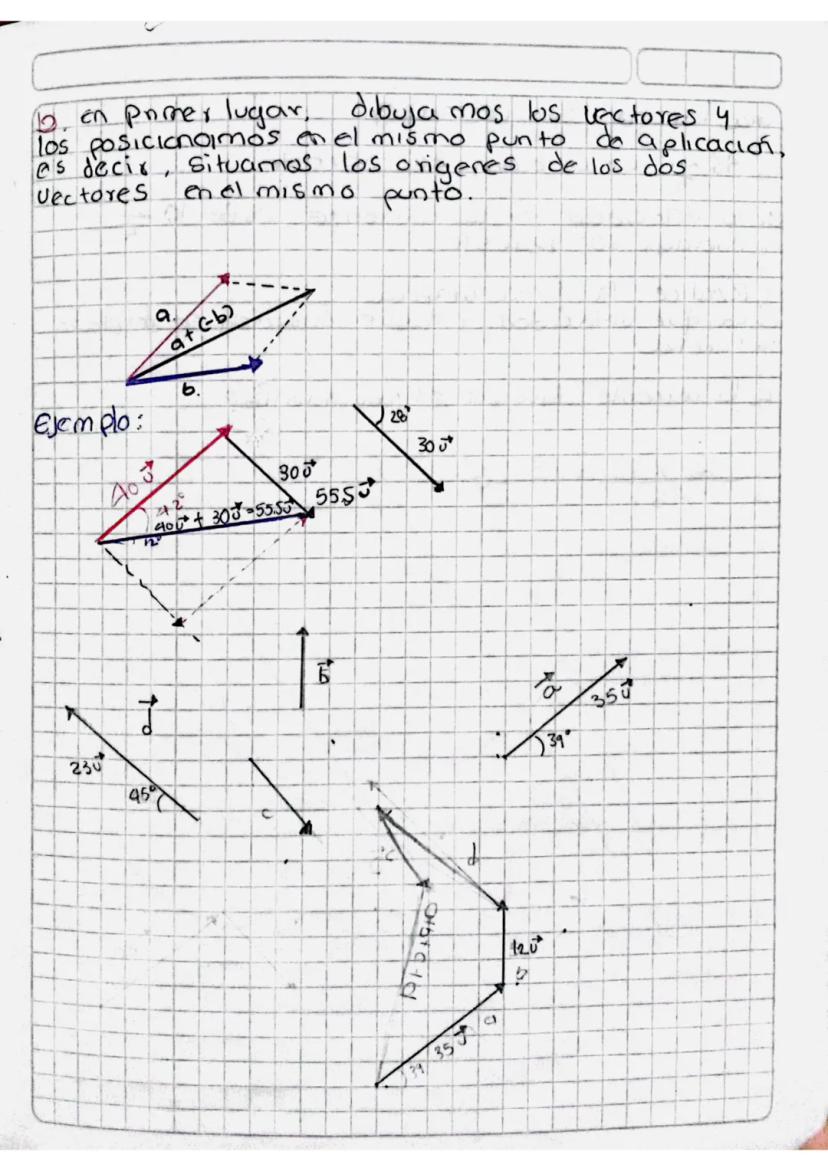 b. en primer lugar, dibujamos los vectores y
los posicionamos en el mismo punto de aplicación,
es decir, situamos los origenes de los dos
vectores en el mismo punto.
a.
a+(-b)
b.
Ejemplo:
28°
30u⃗
40u⃗
30u⃗
55.5u⃗
42°
40u⃗ + 30u⃗ = 55.5u⃗
12°
b⃗
a⃗
35u⃗
39°
d⃗
23u⃗
45°
c
c
d
12u⃗
b
a
35u⃗
39